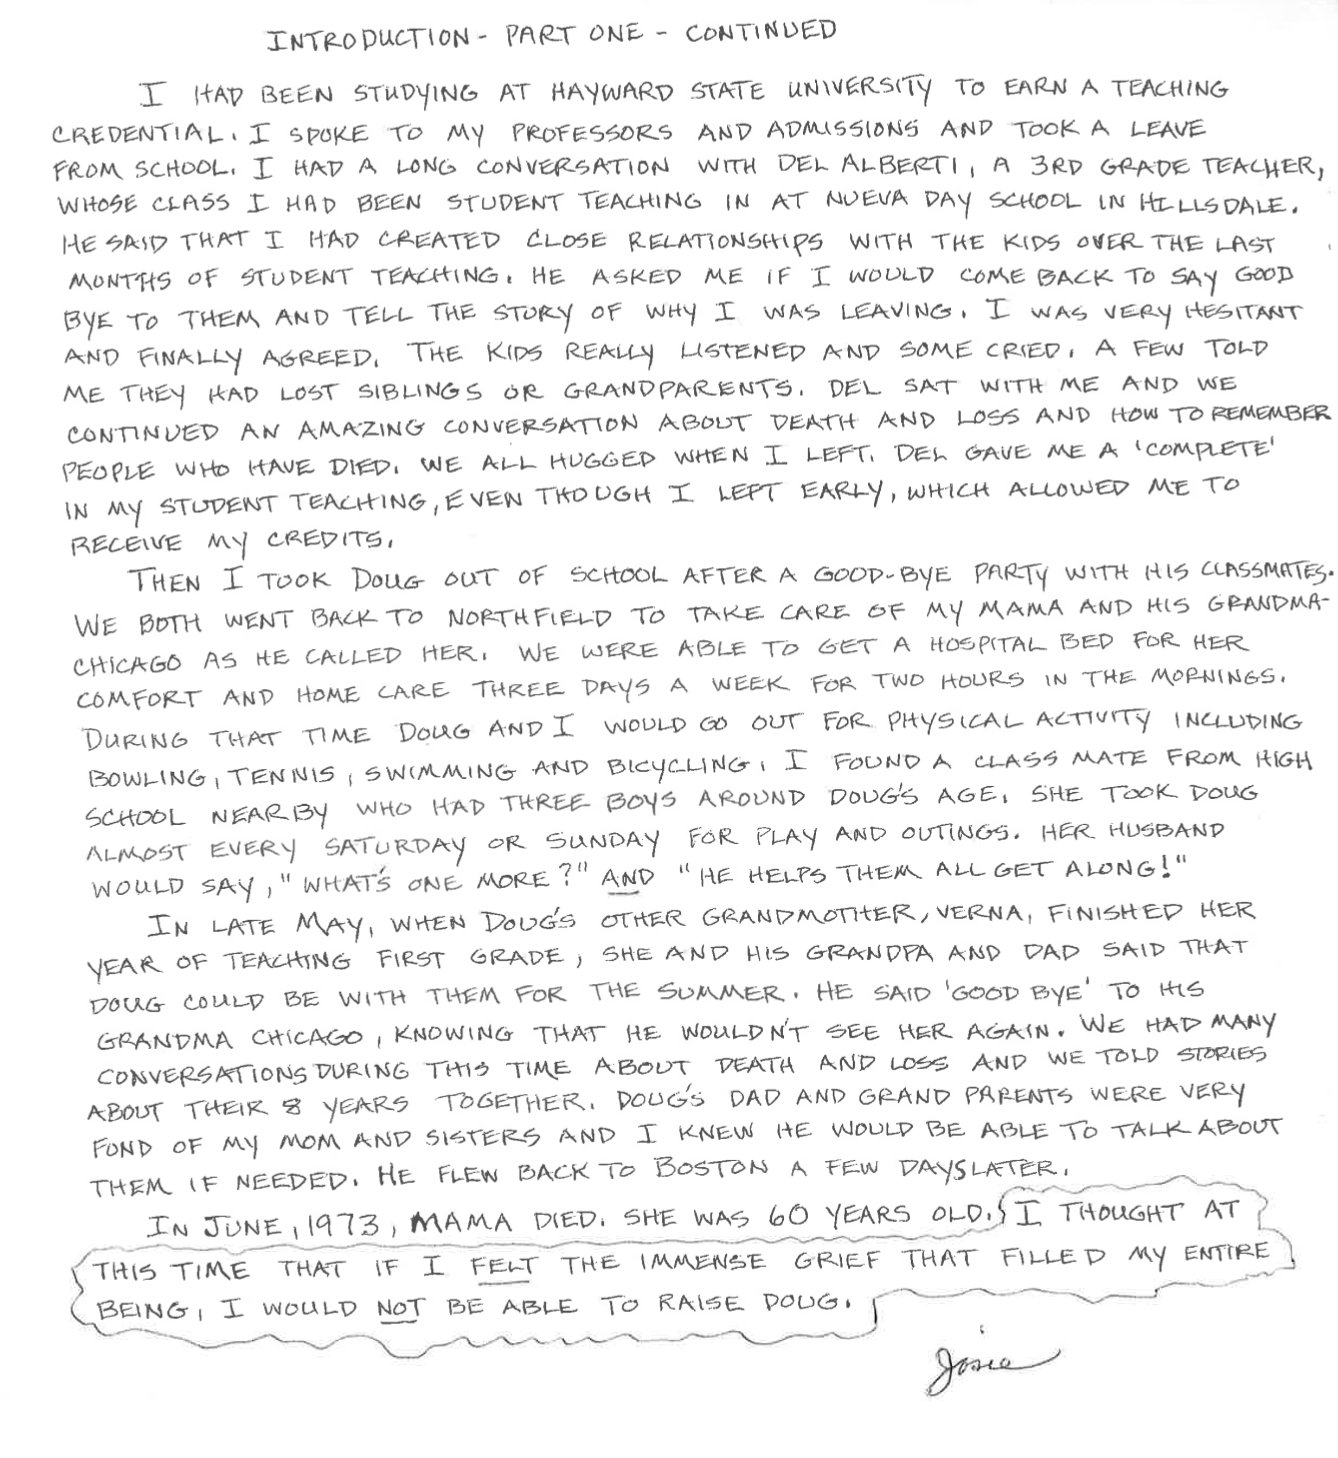 INTRODUCTION - PART ONE - CONTINUED
I HAD BEEN STUDYING AT HAYWARD STATE UNIVERSITY TO EARN A TEACHING
CREDENTIAL. I SPOKE TO MY PROFESSORS AND ADMISSIONS AND TOOK A LEAVE
FROM SCHOOL. I HAD A LONG CONVERSATION WITH DEL ALBERTI, A 3RD GRADE TEACHER,
WHOSE CLASS I HAD BEEN STUDENT TEACHING IN AT NUEVA DAY SCHOOL IN HILLSDALE.
HE SAID THAT I HAD CREATED CLOSE RELATIONSHIPS WITH THE KIDS OVER THE LAST
MONTHS OF STUDENT TEACHING. HE ASKED ME IF I WOULD COME BACK TO SAY GOOD
BYE TO THEM AND TELL THE STORY OF WHY I WAS LEAVING. I WAS VERY HESITANT
AND FINALLY AGREED. THE KIDS REALLY LISTENED AND SOME CRIED. A FEW TOLD
ME THEY HAD LOST SIBLINGS OR GRANDPARENTS. DEL SAT WITH ME AND WE
CONTINUED AN AMAZING CONVERSATION ABOUT DEATH AND LOSS AND HOW TO REMEMBER
PEOPLE WHO HAVE DIED. WE ALL HUGGED WHEN I LEFT. DEL GAVE ME A 'COMPLETE'
IN MY STUDENT TEACHING, EVEN THOUGH I LEFT EARLY, WHICH ALLOWED ME TO
RECEIVE MY CREDITS.
THEN I TOOK DOUG OUT OF SCHOOL AFTER A GOOD-BYE PARTY WITH HIS CLASSMATES.
WE BOTH WENT BACK TO NORTHFIELD TO TAKE CARE OF MY MAMA AND HIS GRANDMA-
CHICAGO AS HE CALLED HER. WE WERE ABLE TO GET A HOSPITAL BED FOR HER
COMFORT AND HOME CARE THREE DAYS A WEEK FOR TWO HOURS IN THE MORNINGS.
DURING THAT TIME DOUG AND I WOULD GO OUT FOR PHYSICAL ACTIVITY INCLUDING
BOWLING, TENNIS, SWIMMING AND BICYCLING. I FOUND A CLASS MATE FROM HIGH
SCHOOL NEARBY WHO HAD THREE BOYS AROUND DOUG'S AGE. SHE TOOK DOUG
ALMOST EVERY SATURDAY OR SUNDAY FOR PLAY AND OUTINGS. HER HUSBAND
WOULD SAY, "WHAT'S ONE MORE?" AND "HE HELPS THEM ALL GET ALONG!"
IN LATE MAY, WHEN DOUG'S OTHER GRANDMOTHER, VERNA, FINISHED HER
YEAR OF TEACHING FIRST GRADE, SHE AND HIS GRANDPA AND DAD SAID THAT
DOUG COULD BE WITH THEM FOR THE SUMMER. HE SAID 'GOOD BYE' TO HIS
GRANDMA CHICAGO, KNOWING THAT HE WOULDN'T SEE HER AGAIN. WE HAD MANY
CONVERSATIONS DURING THIS TIME ABOUT DEATH AND LOSS AND WE TOLD STORIES
ABOUT THEIR 8 YEARS TOGETHER. DOUG'S DAD AND GRAND PARENTS WERE VERY
FOND OF MY MOM AND SISTERS AND I KNEW HE WOULD BE ABLE TO TALK ABOUT
THEM IF NEEDED. HE FLEW BACK TO BOSTON A FEW DAYS LATER.
IN JUNE, 1973, MAMA DIED. SHE WAS 60 YEARS OLD. I THOUGHT AT
THIS TIME THAT IF I FELT THE IMMENSE GRIEF THAT FILLED MY ENTIRE
BEING, I WOULD NOT BE ABLE TO RAISE DOUG.
Josie